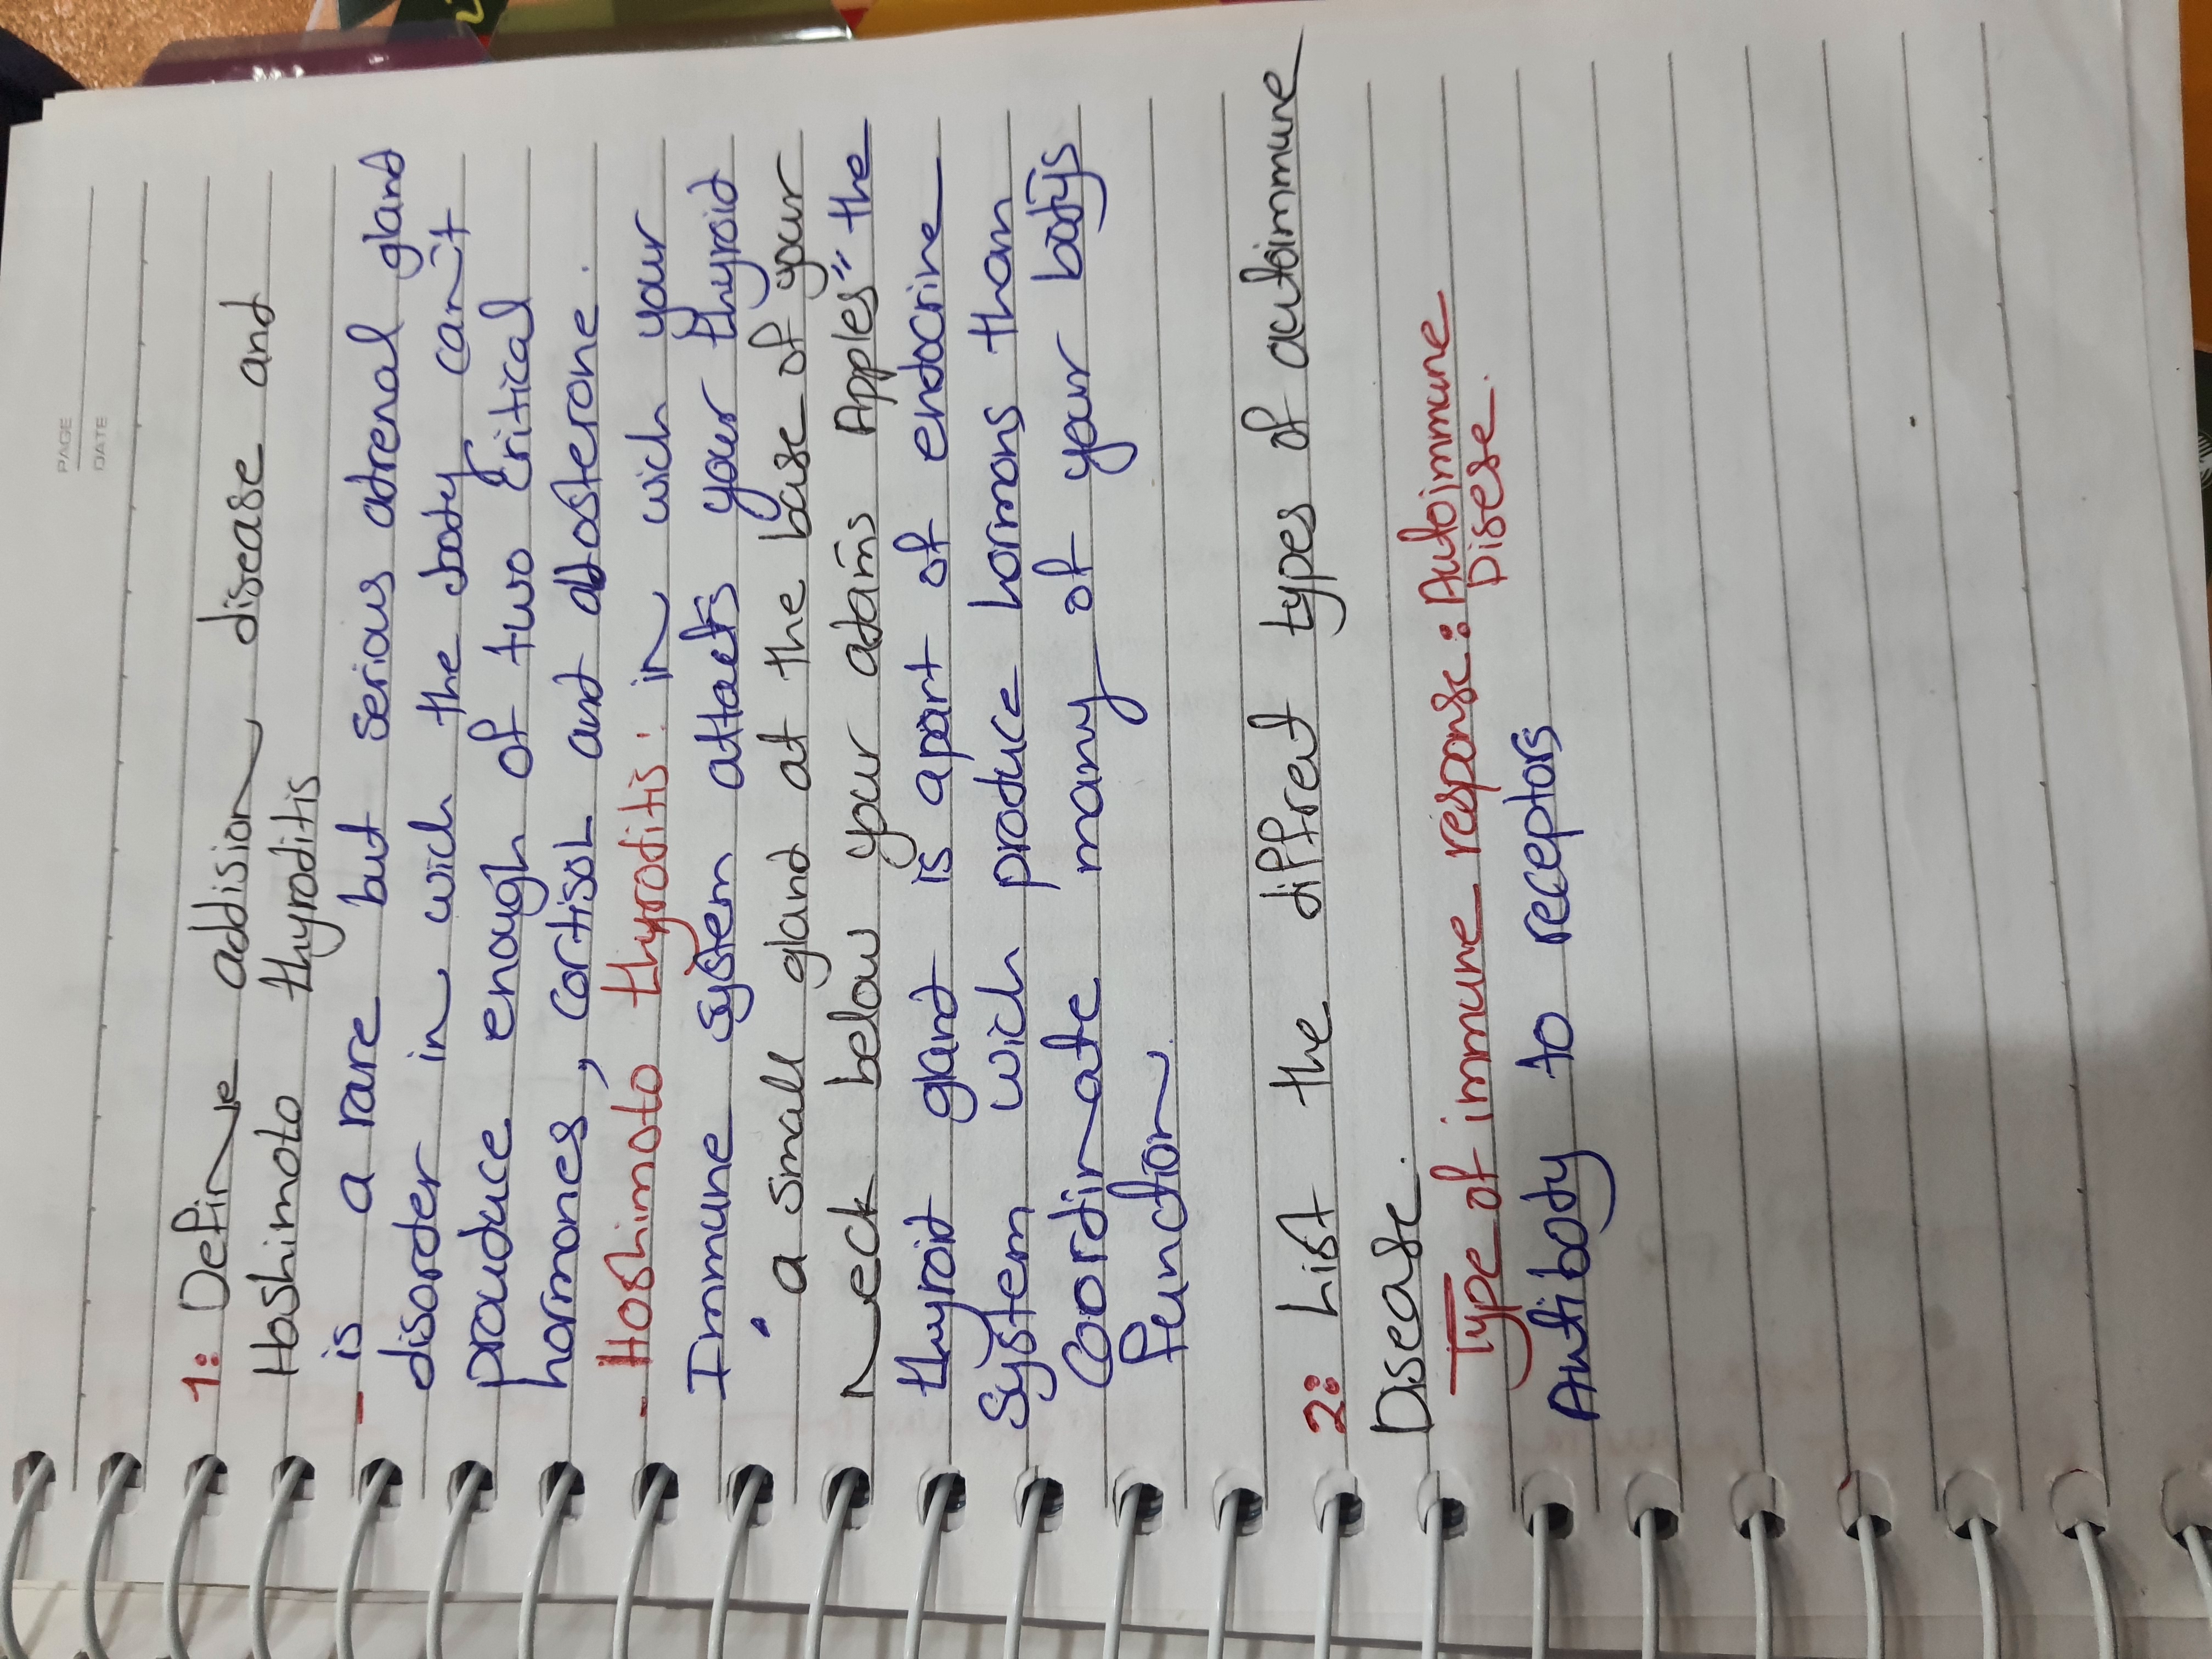 PAGE
DATE
1: Define addision disease and
Hoshimoto thyroditis
- is a rare but serious adrenal gland
disorder in wich the body can't
produce enough of two critical
hormones, cortisol and adosterone.
- Hoshimoto thyroditis: in wich your
Immune system attacts your thyroid
a small gland at the base of your
neck below your adam's Apples" the
thyroid gland is apart of endocrine
system wich produce hormons tham
Coordinate many of your body's
function.
2: List the diffret types of autoimmune
Disease.
Type of immune response: Autoimmune
Disese.
Antibody to receptors